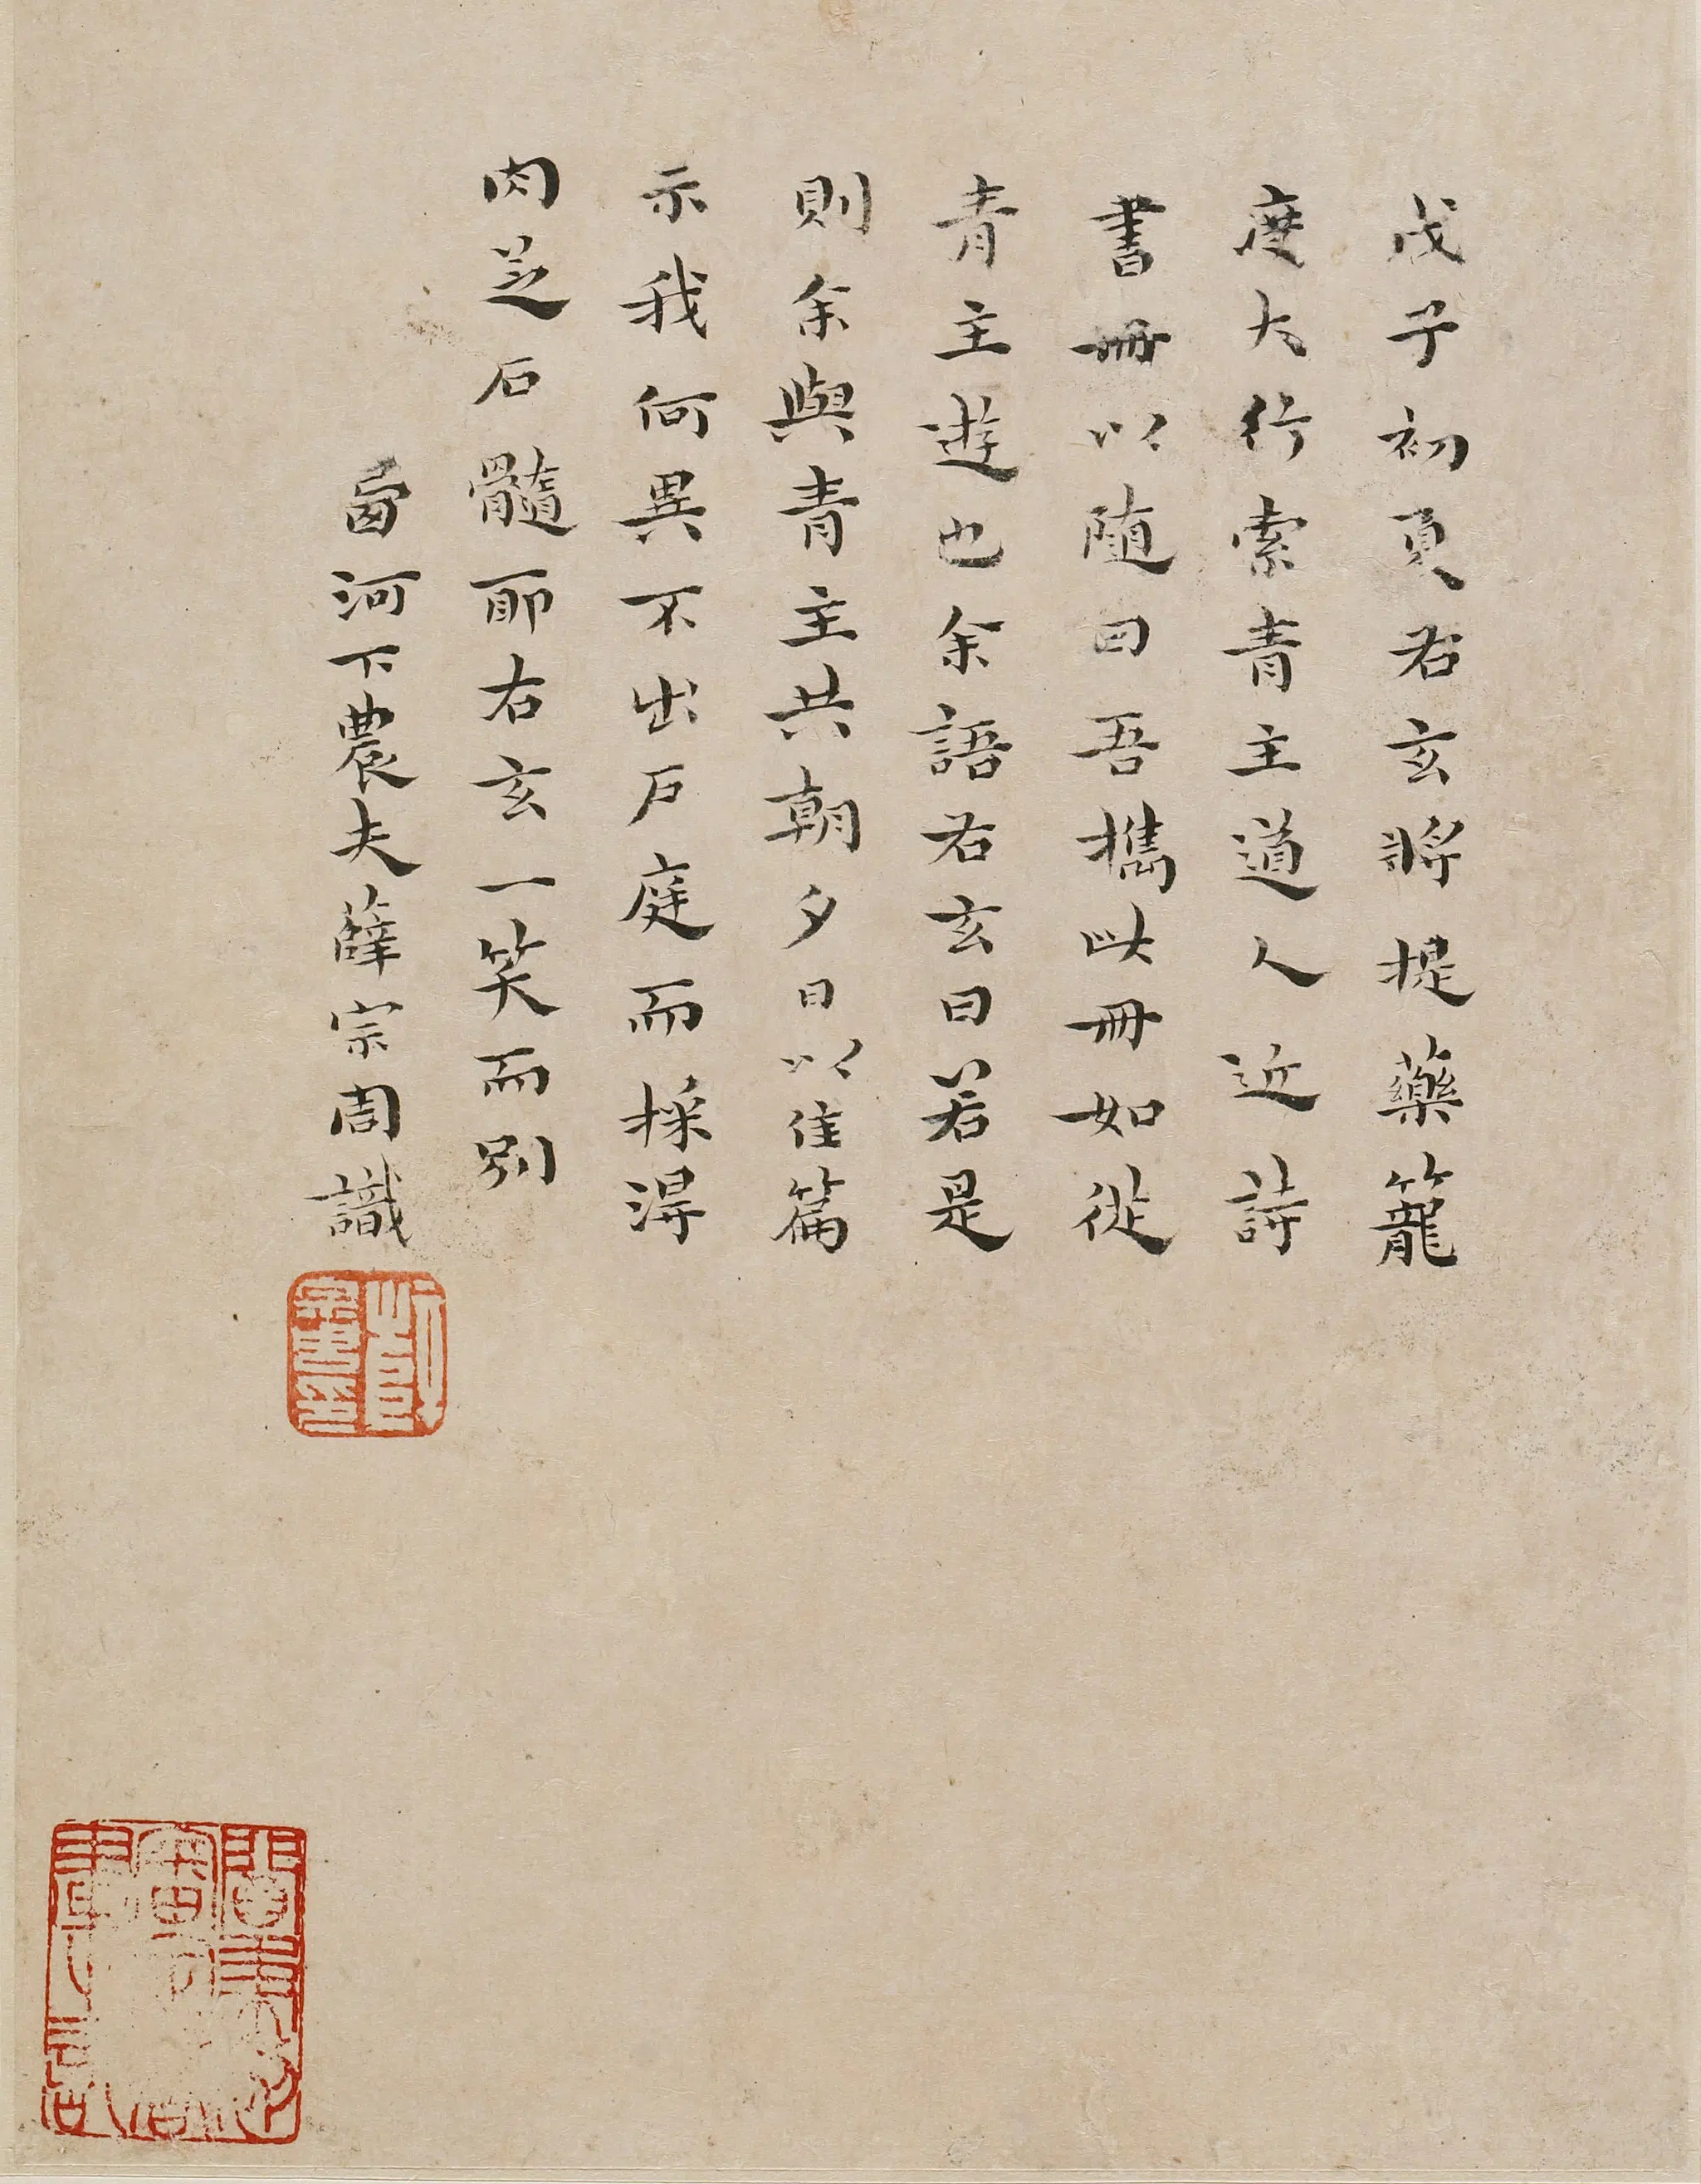 戊子初夏右玄將提藥籠
度大行索青主道人近詩
書冊以隨曰吾攜此冊如從
青主遊也余語右玄曰若是
則余與青主共朝夕日以佳篇
示我何異不出戶庭而採得
肉芝石髓耶右玄一笑而別
河下農夫薛宗周識